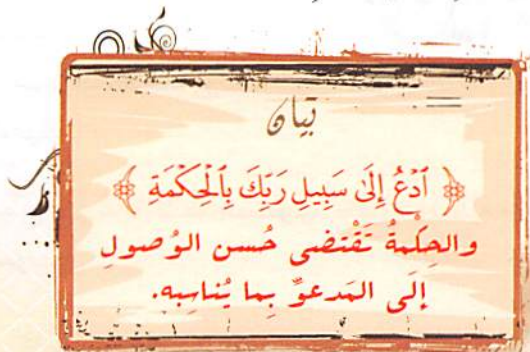 بيان
﴿ ٱدۡعُ إِلَىٰ سَبِيلِ رَبِّكَ بِٱلۡحِكۡمَةِ ﴾
والحِكْمةُ تَقْتضى حُسن الوُصولِ
إلَى المَدعوِّ بِما يُناسِبه.